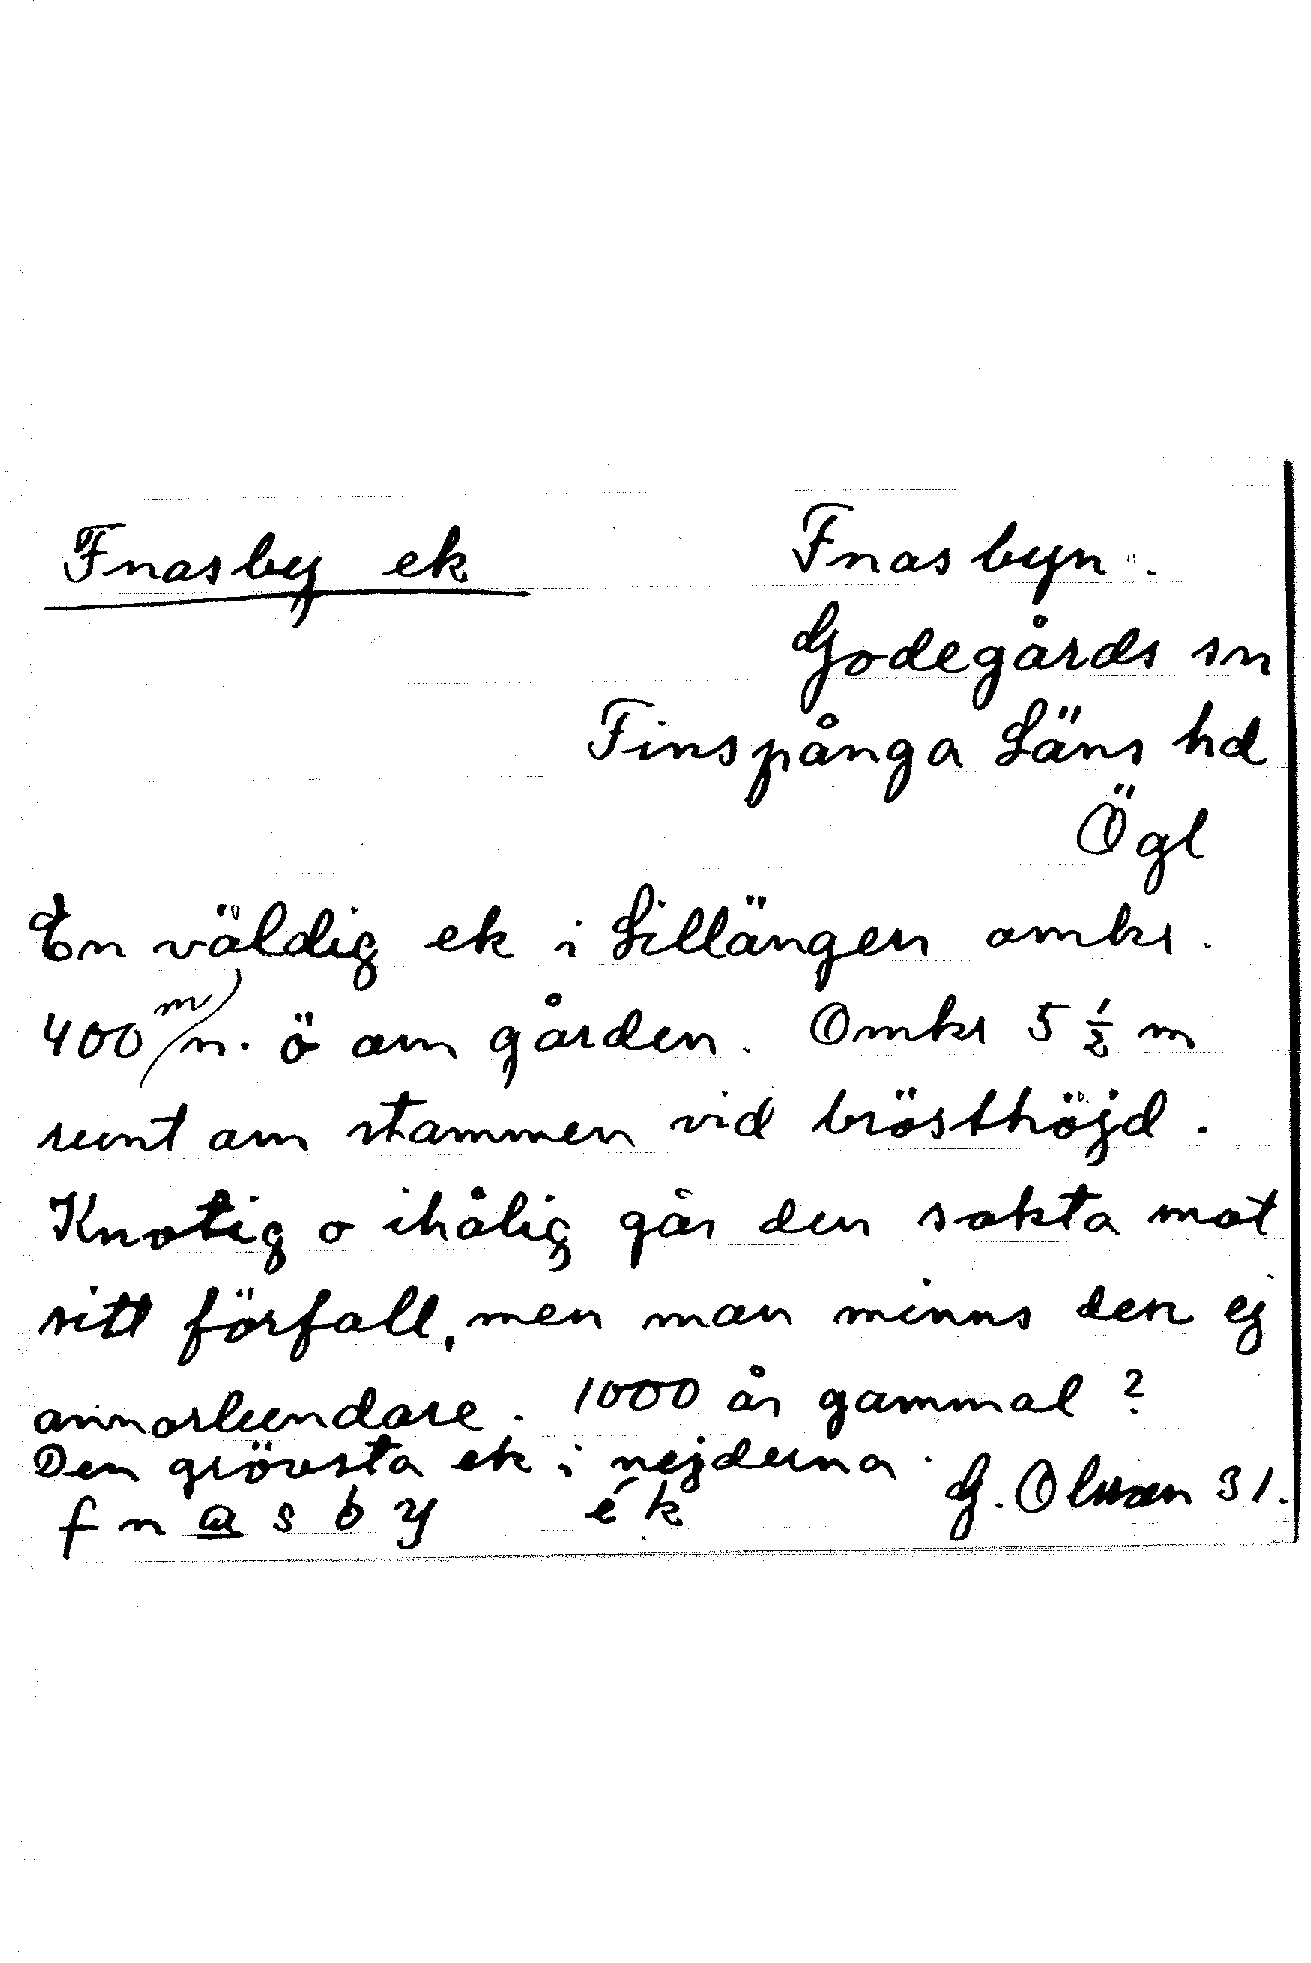 Fnasby ek
Fnasbyn.
Godegårds sn
Finspånga Läns hd
Ögl
En väldig ek i Lillängen omkr.
400 m n. ö om gården. Omkr 5 ½ m
runt om stammen vid brösthöjd.
Knotig o ihålig går den sakta mot
sitt förfall, men man minns den ej
annorlundare. 1000 år gammal?
Den grövsta ek i nejderna.
G. Olsson 31.
fnasby ék